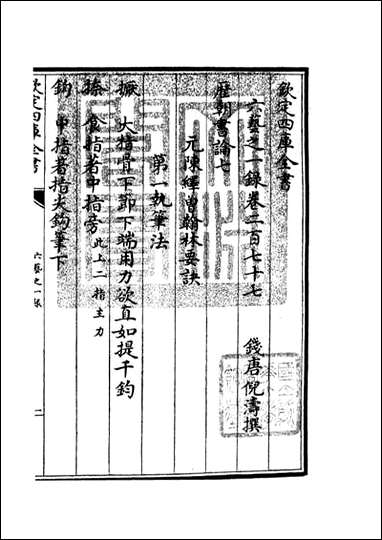 欽定四庫全書
六藝之一録卷二百七十七
錢唐倪濤撰
歴朝書論七
元陳繹曽翰林要訣
第一執筆法
擫 大指骨下節下端用力欲直如提千鈞
捺 食指著中指旁此上二指主力
鈎 中指著指尖鈎筆下
欽定四庫全書
六藝之一録